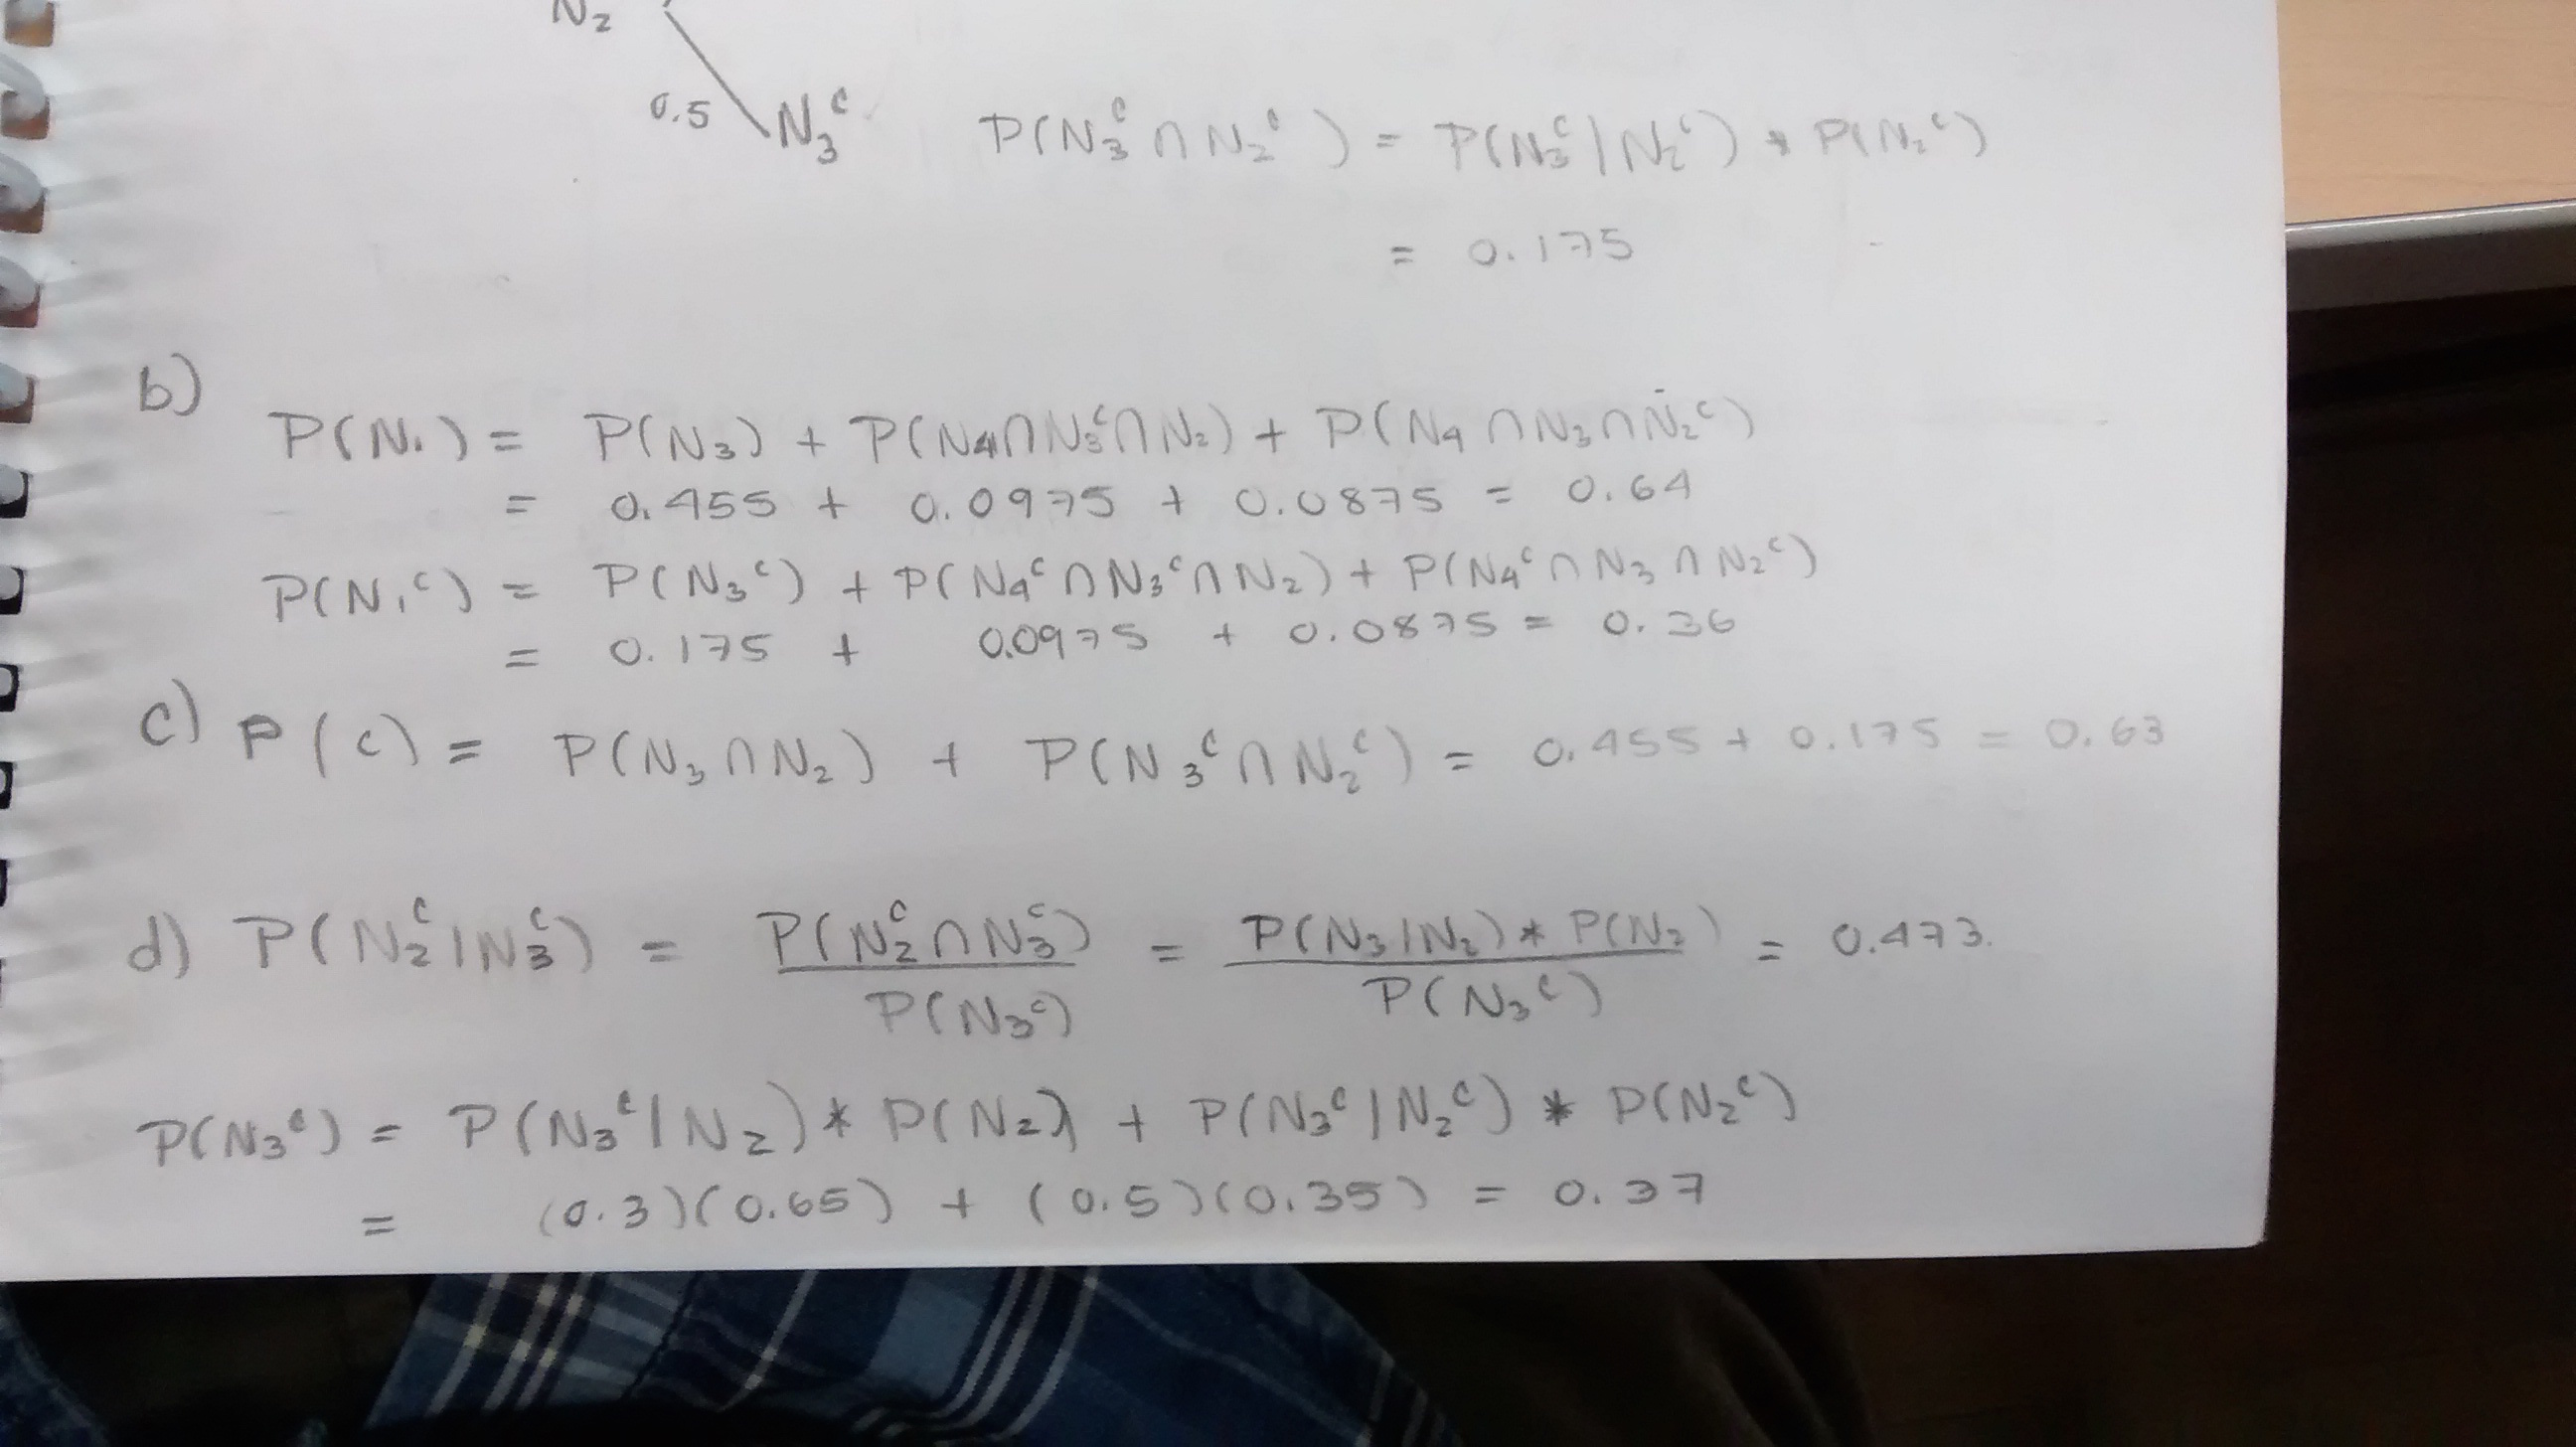 N₂
0.5 N₃ᶜ P(N₃ᶜ ∩ N₂ᶜ) = P(N₃ᶜ | N₂ᶜ) * P(N₂ᶜ)
= 0.175
b)
P(N₁) = P(N₃) + P(N₄ ∩ N₃ᶜ ∩ N₂) + P(N₄ ∩ N₃ ∩ N₂ᶜ)
= 0.455 + 0.0975 + 0.0875 = 0.64
P(N₁ᶜ) = P(N₃ᶜ) + P(N₄ᶜ ∩ N₃ᶜ ∩ N₂) + P(N₄ᶜ ∩ N₃ ∩ N₂ᶜ)
= 0.175 + 0.0975 + 0.0875 = 0.36
c) P(C) = P(N₃ ∩ N₂) + P(N₃ᶜ ∩ N₂ᶜ) = 0.455 + 0.175 = 0.63
d) P(N₂ᶜ | N₃ᶜ) = P(N₂ᶜ ∩ N₃ᶜ) / P(N₃ᶜ) = P(N₃ | N₂) * P(N₂) / P(N₃ᶜ) = 0.473.
P(N₃ᶜ) = P(N₃ᶜ | N₂) * P(N₂) + P(N₃ᶜ | N₂ᶜ) * P(N₂ᶜ)
= (0.3)(0.65) + (0.5)(0.35) = 0.37